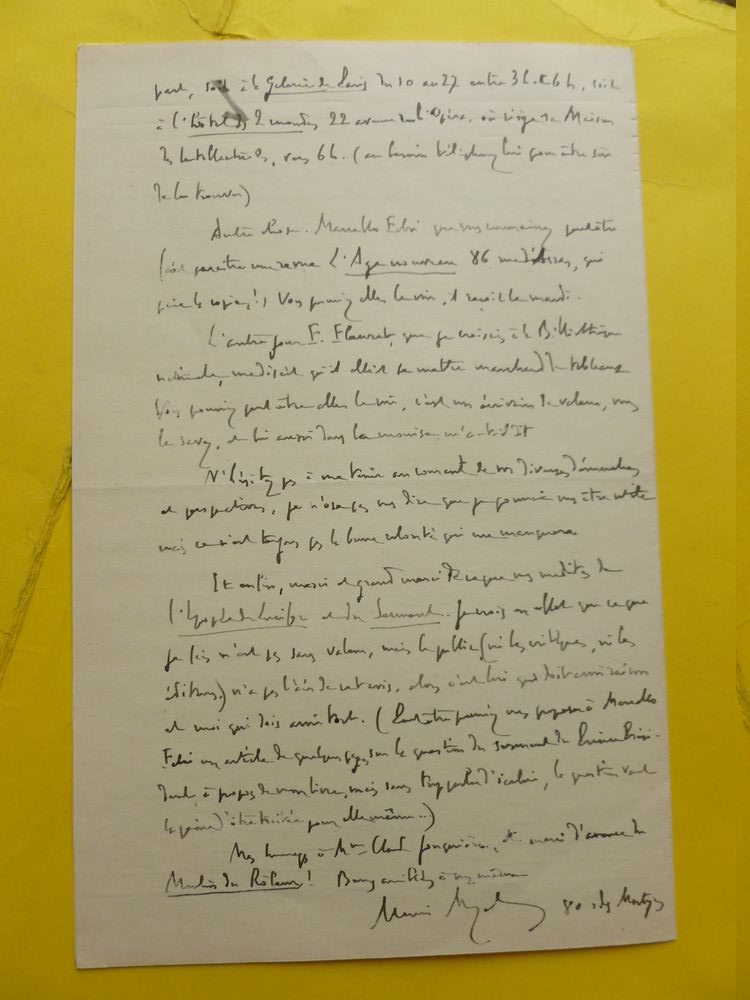 part, soit à la Galerie de Paris du 10 au 27 entre 3h. et 6h, soit
à l'hôtel des 2 mondes 22 avenue de l'Opéra, où siège la Maison
des Intellectuels, vers 6h. (au besoin téléphonez lui pour être sûr
de le trouver)
Autre chose. Marcello Fabri que vous connaissez peut-être
fait paraître une revue L'Age nouveau 86 rue d'Assas, qui
paie la copie!) Vous pourriez aller le voir, il reçoit le mardi.
L'autre jour F. Fleuret, que je croisais à la Bibliothèque
nationale, me disait qu'il allait se mettre marchand de tableaux
Vous pourriez peut-être aller le voir, c'est un écrivain de valeur, vous
le savez, et lui aussi dans la mouise, m'a-t-il dit
N'hésitez pas à me tenir au courant de vos diverses démarches
et perspectives, je n'ose pas vous dire que je pourrai vous être utile
mais ce n'est toujours pas la bonne volonté qui me manquera
Et enfin, merci et grand merci de ce que vous me dites de
l'Epopée de Lucifer et du Surmont. Je crois en effet que ce que
je fais n'est pas sans valeur, mais le public (ni les critiques, ni les
éditeurs,) n'a pas l'air de cet avis, alors c'est lui qui doit avoir raison
et moi qui dois avoir tort. (Peut-être pourriez vous proposer à Marcello
Fabri un article de quelques pages sur la question du
à propos de mon livre, mais sans trop parler d'icelui, la question vaut
la peine d'être traitée pour elle même...)
Mes hommages à Mme Claude Jonquière, et merci d'avance du
Merlin du Rôtour! Bonnes amitiés à vous même
80 r. des Martyrs